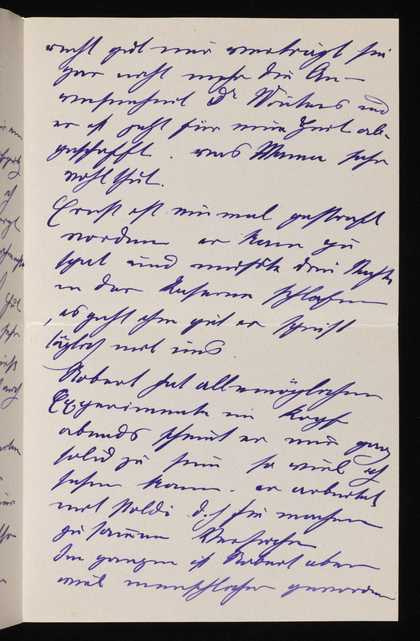 recht gut nur verträgt sie
gar nicht mehr die An-
wesenheit Dr Winters und
er ist jetzt für eine Zeit ab-
geschafft. was Mama sehr
wohl thut.
Ernst ist ein mal gestraft
worden er kam zu
spät und musste drei Nächte
in der Kaserne schlafen
, es geht ihm gut er speist
täglich mit uns.
Robert hat alle möglichen
Experimente im Kopf
abends scheint er mir ganz
solid zu sein so viel ich
sehen kann. er arbeitet
mit Poldi d.h. sie machen
zusammen Versuche
Im ganzen ist Robert aber
viel menschlicher geworden